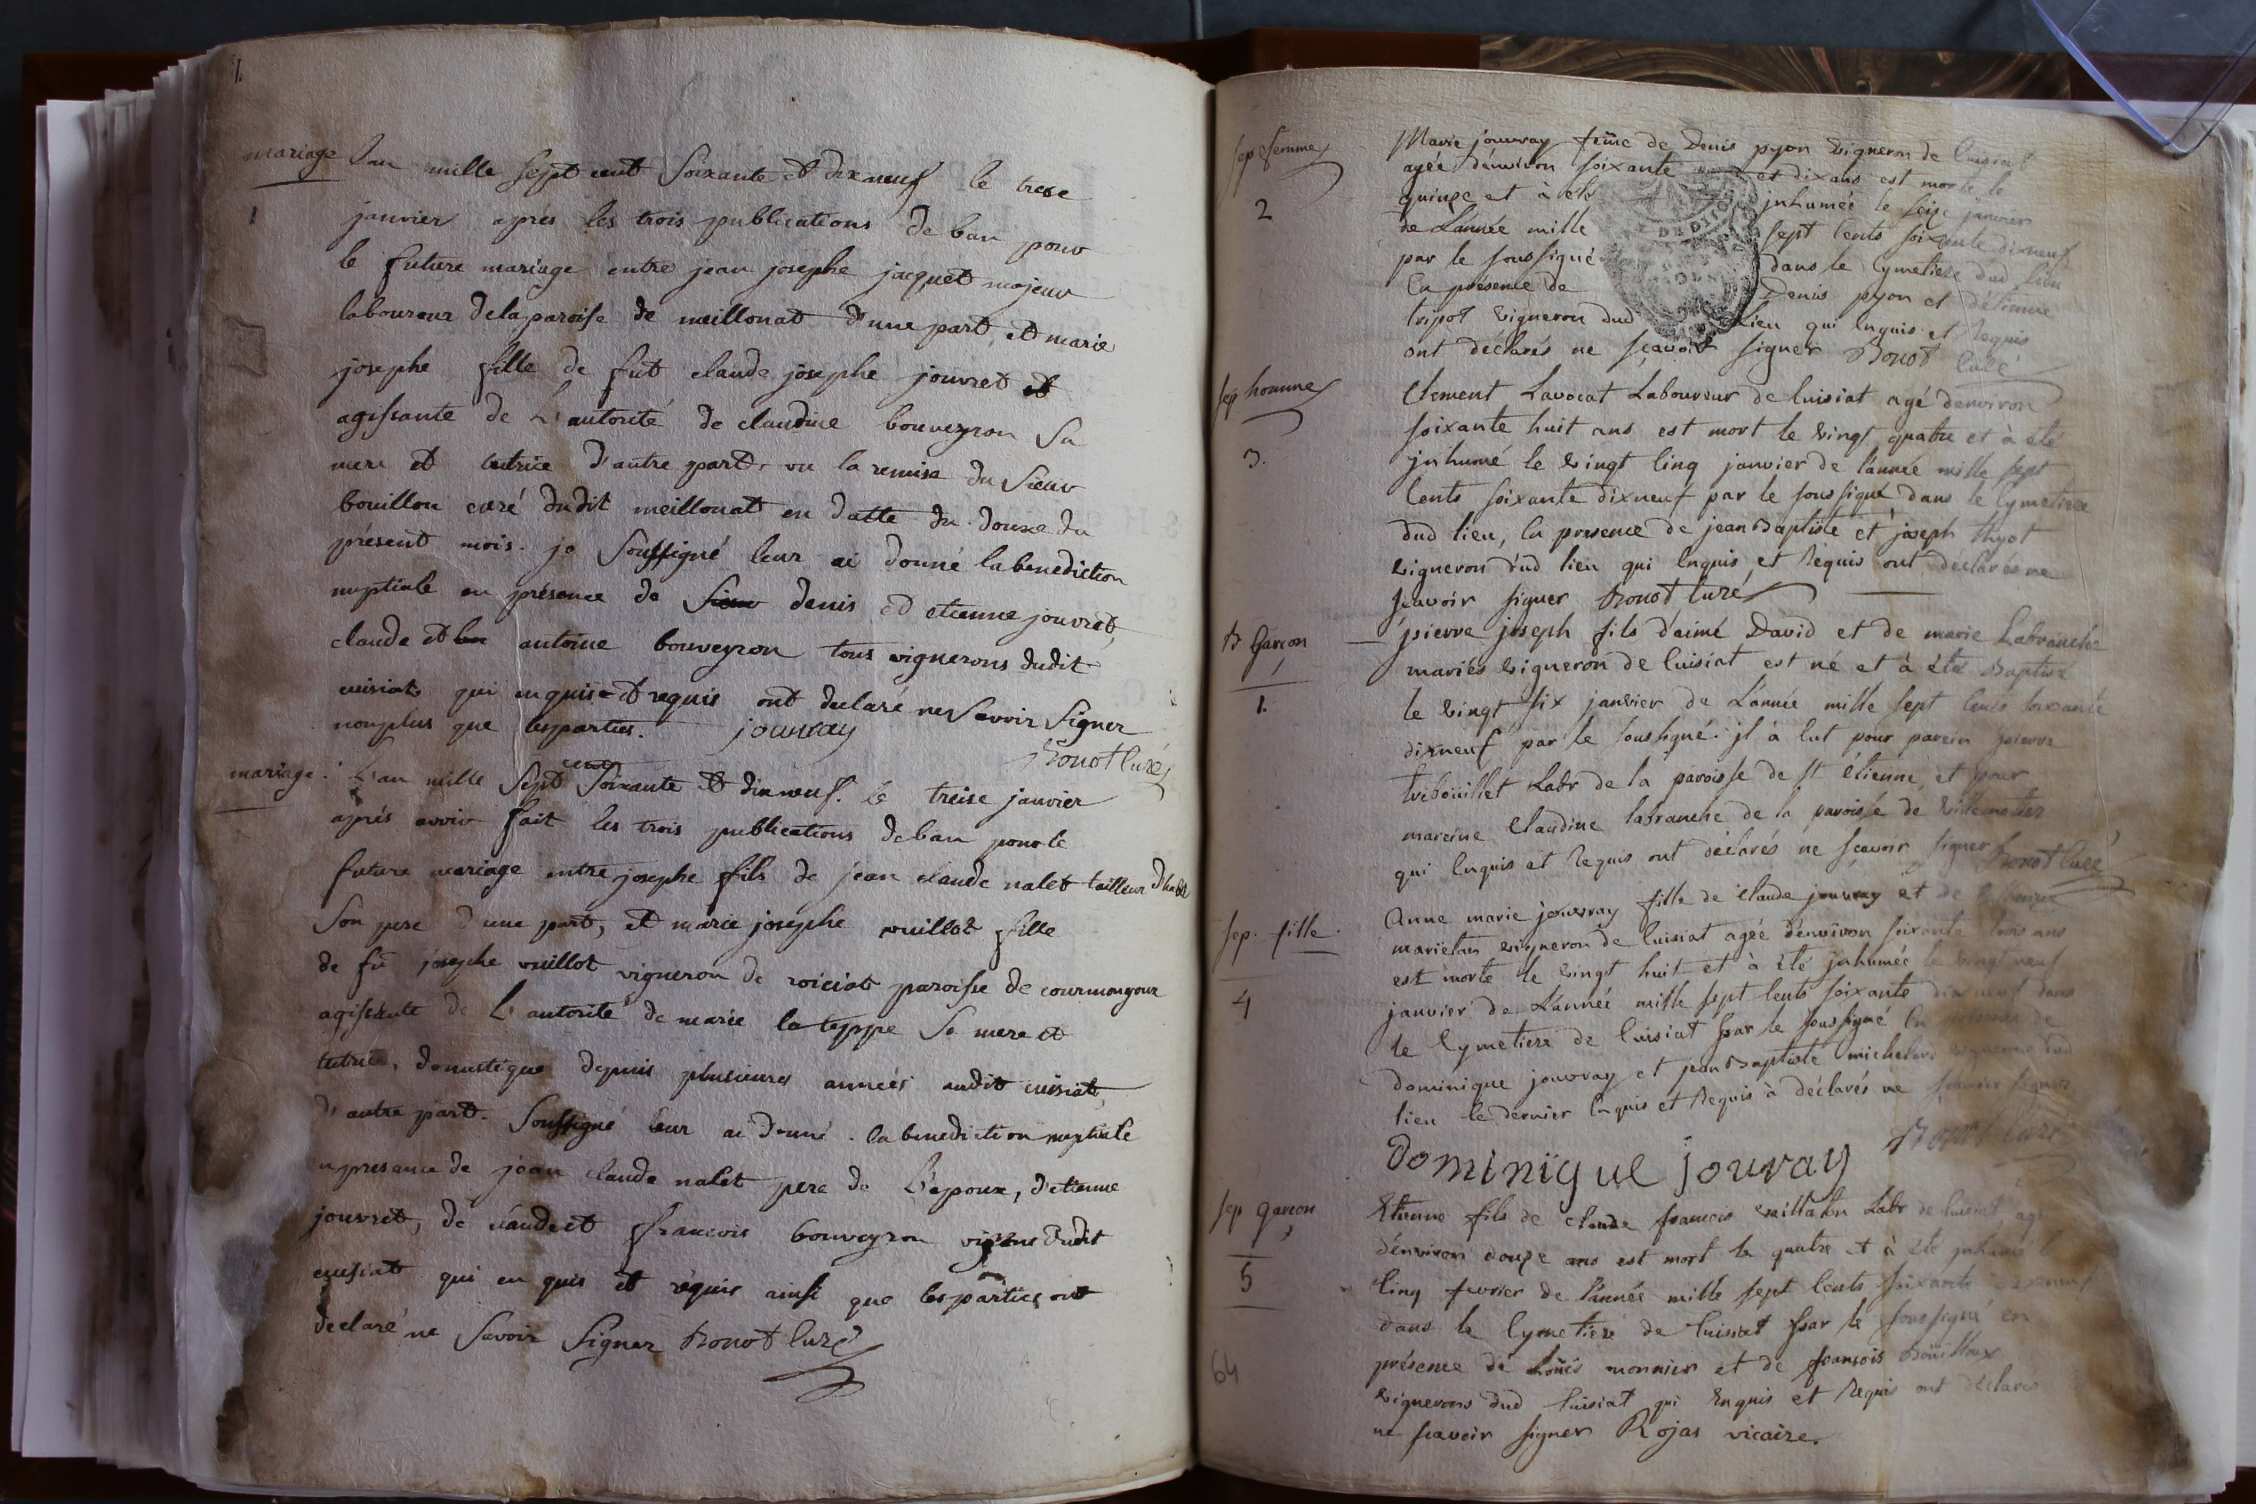 1.
mariage L'an mille sept cent soixante et dixneuf le treze
1
janvier aprés les trois publications de ban pour
le future mariage entre jean josephe jacquet majeur
laboureur dela paroise de meillonat d'une part, et marie
josephe fille de fut claude josephe jouvret et
agissante de L'autorité de claudine bouveyron sa
mere et tutrice d'autre part, vu la remise du sieur
bouillon curé dudit meillonat en datte du douze du
présent mois. je soussigné leur ai donné la benediction
nuptiale en présence de sieur denis et etienne jouvret,
claude et antoine bouveyron tous vignerons dudit
cuisiat qui enquis et requis ont declaré ne savoir signer
nonplus que les parties. jouvray
Bonot Curé
mariage. L'an mille sept cent soixante et dixneuf. le treise janvier
aprés avoir fait les trois publications de ban pour le
future mariage entre josephe fils de jean claude nalet tailleur d'habit
son pere d'une part, et marie josephe vuillot fille
de fû josephe vuillot vigneron de roiciat paroisse de courmangoux
agissante de L'autorité de marie la teyppe sa mere et
tutrice, domestique depuis plusieures années audit cuisiat,
d'autre part. Soussigné leur ai donné la benediction nuptiale
en presence de jean claude nalet pere de L'epoux, d'etienne
jouvret, de claude et francois bouveyron dudit
cuisiat qui en quis et réquis ainsi que les parties ont
declaré ne savoir signer Bonot Curé
sep femme
2
Marie jouvray feme de Denis pyon vigneron de Cuisiat
agée d'environ soixante et dix ans est morte le
quinze et à eté jnhumée le seize janvier
de L'année mille sept Cents soixante dixneuf
par le soussigné dans le Cymetiere dud lieu
En présence de Denis pyon et d'étienne
tripot vigneron dud Lieu qui Enquis et Requis
ont déclarés ne sçavoir signer Bonot Curé
sep homme
3.
Clement Lavocat Laboureur de Cuisiat agé d'environ
soixante huit ans est mort le vingt quatre et à été
jnhumé le vingt Cinq janvier de l'année mille sept
Cents soixante dixneuf par le soussigné dans le Cymetiere
dud lieu, En presence de jean Baptiste et joseph thyot
vigneron dud lieu qui Enquis et Réquis ont déclarés ne
sçavoir signer Bonot Curé
B Garcon
1.
pierre joseph fils d'aimé David et de marie Labranche
mariés vigneron de Cuisiat est né et à été Baptisé
le vingt six janvier de L'année mille sept Cents soixante
dixneuf par le soussigné. jl à Eut pour parein pierre
tribouillet Labr de la paroisse de st étienne et pour
mareine Claudine labranche de la paroisse de villemotier
qui Enquis et Requis ont déclarés ne sçavoir signer Bonot Curé
sep. fille.
4
Anne marie jouvray fille de Claude jouvray et de
marietan vigneron de Cuisiat agée d'environ soixante ans
est morte le vingt huit et à été jnhumée le vingt neuf
janvier de L'année mille sept Cents soixante dixneuf dans
le Cymetiere de Cuisiat par le soussigné En présence de
dominique jouvray et jean Baptiste michelon vigneron dud
lieu le dernier Enquis et Requis à déclarés ne sçavoir signer
Dominiqul jouvray Bonot Curé
sep garcon
5
Etienne fils de Claude francois vaillaton Labr de Cuisiat agé
d'environ douze ans est mort le quatre et à été jnhumé le
Cinq fevrier de l'année mille sept Cents soixante dixneuf
dans le Cymetiere de Cuisiat par le soussigné en
présence de monnier et de francois Bouilloux
vignerons dud Cuisiat qui Enquis et Requis ont declarés
ne sçavoir signer Rojas vicaire.
64